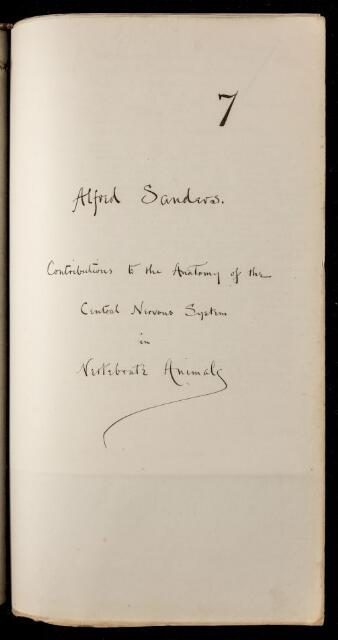 7
Alfred Sanders.
Contributions to the Anatomy of the
Central Nervous System
in
Vertebrate Animals